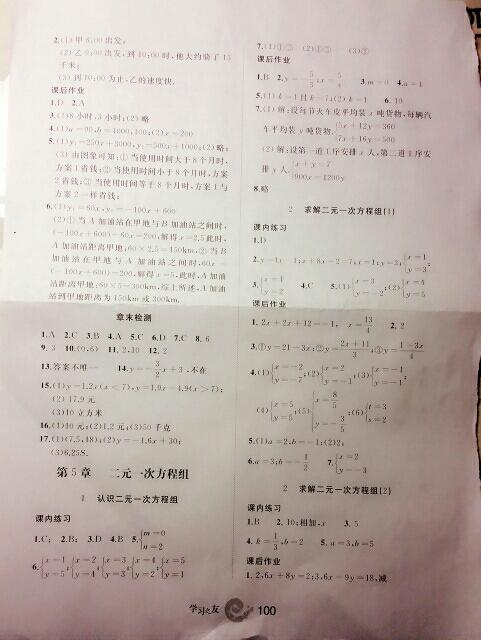 2.(1)甲8:00出发;
(2)乙9:00出发,到10:00时,他大约骑了13
千米;
(3)到10:00为止,乙的速度快.
课后作业
1.D 2.A
3.(1)8小时;3小时;(2)略
4.(1)a=20,b=4000,100;(2)x=200
5.(1)y₁=250x+3000,y₂=500x+1000;(2)略;
(3)由图象可知:①当使用时间大于8个月时,
方案1省钱;②当使用时间小于8个月时,方案
2省钱;③当使用时间等于8个月时,方案1与
方案2一样省钱;
6.(1)y₁=60x,y₂=-100x+600
(2)①当A加油站在甲地与B加油站之间时,
(-100x+600)-60x=200,解得x=2.5,此时,
A加油站距离甲地:60×2.5=150km,②当B
加油站在甲地与A加油站之间时,60x-
(-100x+600)=200,解得x=5,此时,A加油
站距离甲地:60×5=300km,综上所述,A加油
站到甲地距离为150km或300km.
章末检测
1.A 2.C 3.B 4.A 5.C 6.D 7.C 8.6
9.3 10.(0,6) 11.2,10 12.2
13.答案不唯一 14.y=-3/2x+3,不在
15.(1)y=1.2x(x<7),y=1.9x-4.9(x>7);
(2)17.9元
(3)10立方米
16.(1)10元;(2)1.2元;(3)50千克
17.(1)(7.5,18);(2)y=-1.6x+30;
(3)6.25S.
第5章 二元一次方程组
1 认识二元一次方程组
课内练习
1.C; 2.B; 3.D 4.B 5.{m=0 n=2
6.{x=1 y=5 {x=2 y=4 {x=3 y=3 {x=4 y=2 {x=5 y=1
7.(1)①③ (2)①③ (3)①
课后作业
1.B 2.y=-5/5;x=5/4 3.m=0 4.a=1
5.(1)k=1且k=7;(2)k=1 6.10
7.(1)解:设每节火车皮平均装x吨货物,每辆汽
车平均装y吨货物.{5x+12y=360 7x+16y=500
(2)解:设第一道工序安排x人,第二道工序安
排y人.{x+y=7 900x=1200y
8.略
2 求解二元一次方程组(1)
课内练习
1.D
2.y=1x-1;x+8x-2=7;x=1;y=3;{x=1 y=3;
3.{x=-1 y=2 4.C 5.(1){x=3 y=-2;(2){x=4 y=5
课后作业
1.2x+2x+12=-1, x=13/4 2.2
3.①y=21-3x;②y=2x+11/3;③y=1-3x/4
4.(1){x=-2 y=-7;(2){x=-1 y=-2;(3){x=-1 y=1;
(4){x=5 y=5;(5){x=8/5 y=-3/5;(6){t=3 s=2
5.(1)a=2,b=-1;(2)2;
6.a=3;b=-1/2 7.{x=2 y=-3
2 求解二元一次方程组(2)
课内练习
1.B 2.10;相加,x 3.5
4.k=1/3,b=2 5.a=3,b=5
课后作业
1.2,6x+8y=2;3,6x-9y=18,减
学习之友 100